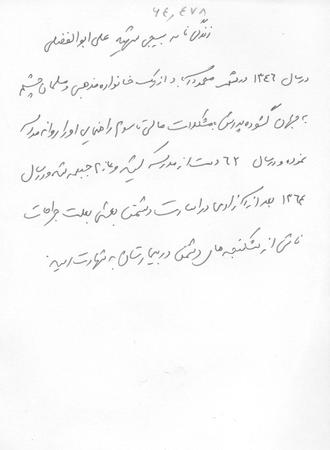 ۶۴,۴۷۸
زندگی نامه بسیجی شهید علی ابوالفضلی
در سال ۱۳۴۶ در شهر محمودآباد از یک خانواده مذهبی و مسلمان چشم
به جهان گشوده پدرش با مشکلات مالی تا سوم راهنمایی او را روانه مدرسه
نموده و در سال ۶۲ دست از مدرسه کشیده و عازم جبهه شد و در سال
۱۳۶۴ بعد از آزادی در اسارت دشمن بعثی بعلت جراحات
ناشی از شکنجه های دشمن در بیمارستان به شهادت رسید